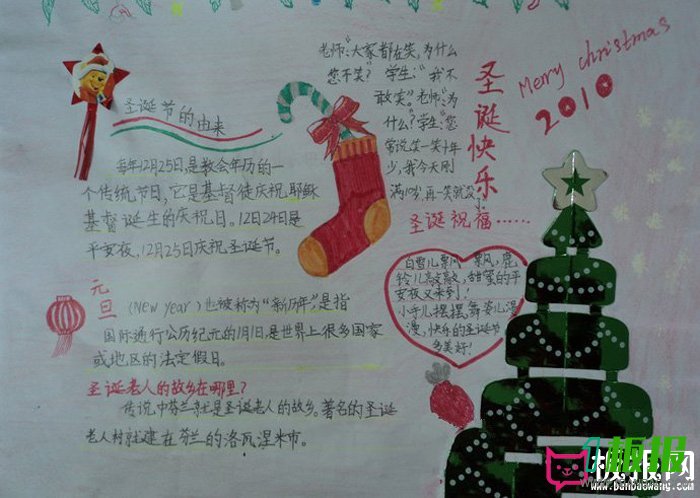 圣诞节的由来
每年12月25日,是教会年历的一
个传统节日,它是基督徒庆祝耶稣
基督诞生的庆祝日。12日24日是
平安夜,12月25日庆祝圣诞节。
元旦
(New year)也被称为“新历年”是指
国际通行公历纪元的1月1日,是世界上很多国家
或地区的法定假日。
圣诞老人的故乡在哪里?
传说中芬兰就是圣诞老人的故乡。著名的圣诞
老人村就建在芬兰的洛瓦涅米市。
老师:“大家都在笑,为什么
您不笑?学生:“我不
敢笑。”老师:“为
什么?学生:“您
常说笑一笑十年
少,我今天刚
满10岁,再一笑就没了
圣诞快乐
Merry christmas
2010
圣诞祝福……
白雪儿飘 飘,鹿
铃儿敲敲,甜蜜的平
安夜又来到!
小手儿摆摆,舞姿儿漫
漫,快乐的圣诞节
多美好!
板报
板报网
www.banbaowang.com